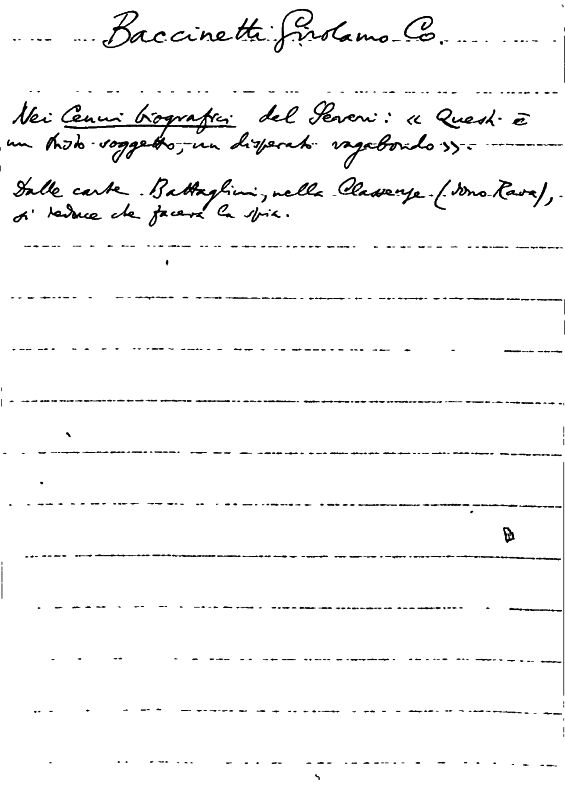 Baccinetti Girolamo Co.
Nei Cenni biografici del Severi: « Questi è
un tristo soggetto, un disperato vagabondo ».
Dalle carte Battaglini, nella Classense (dono Rava),
si deduce che faceva la spia.